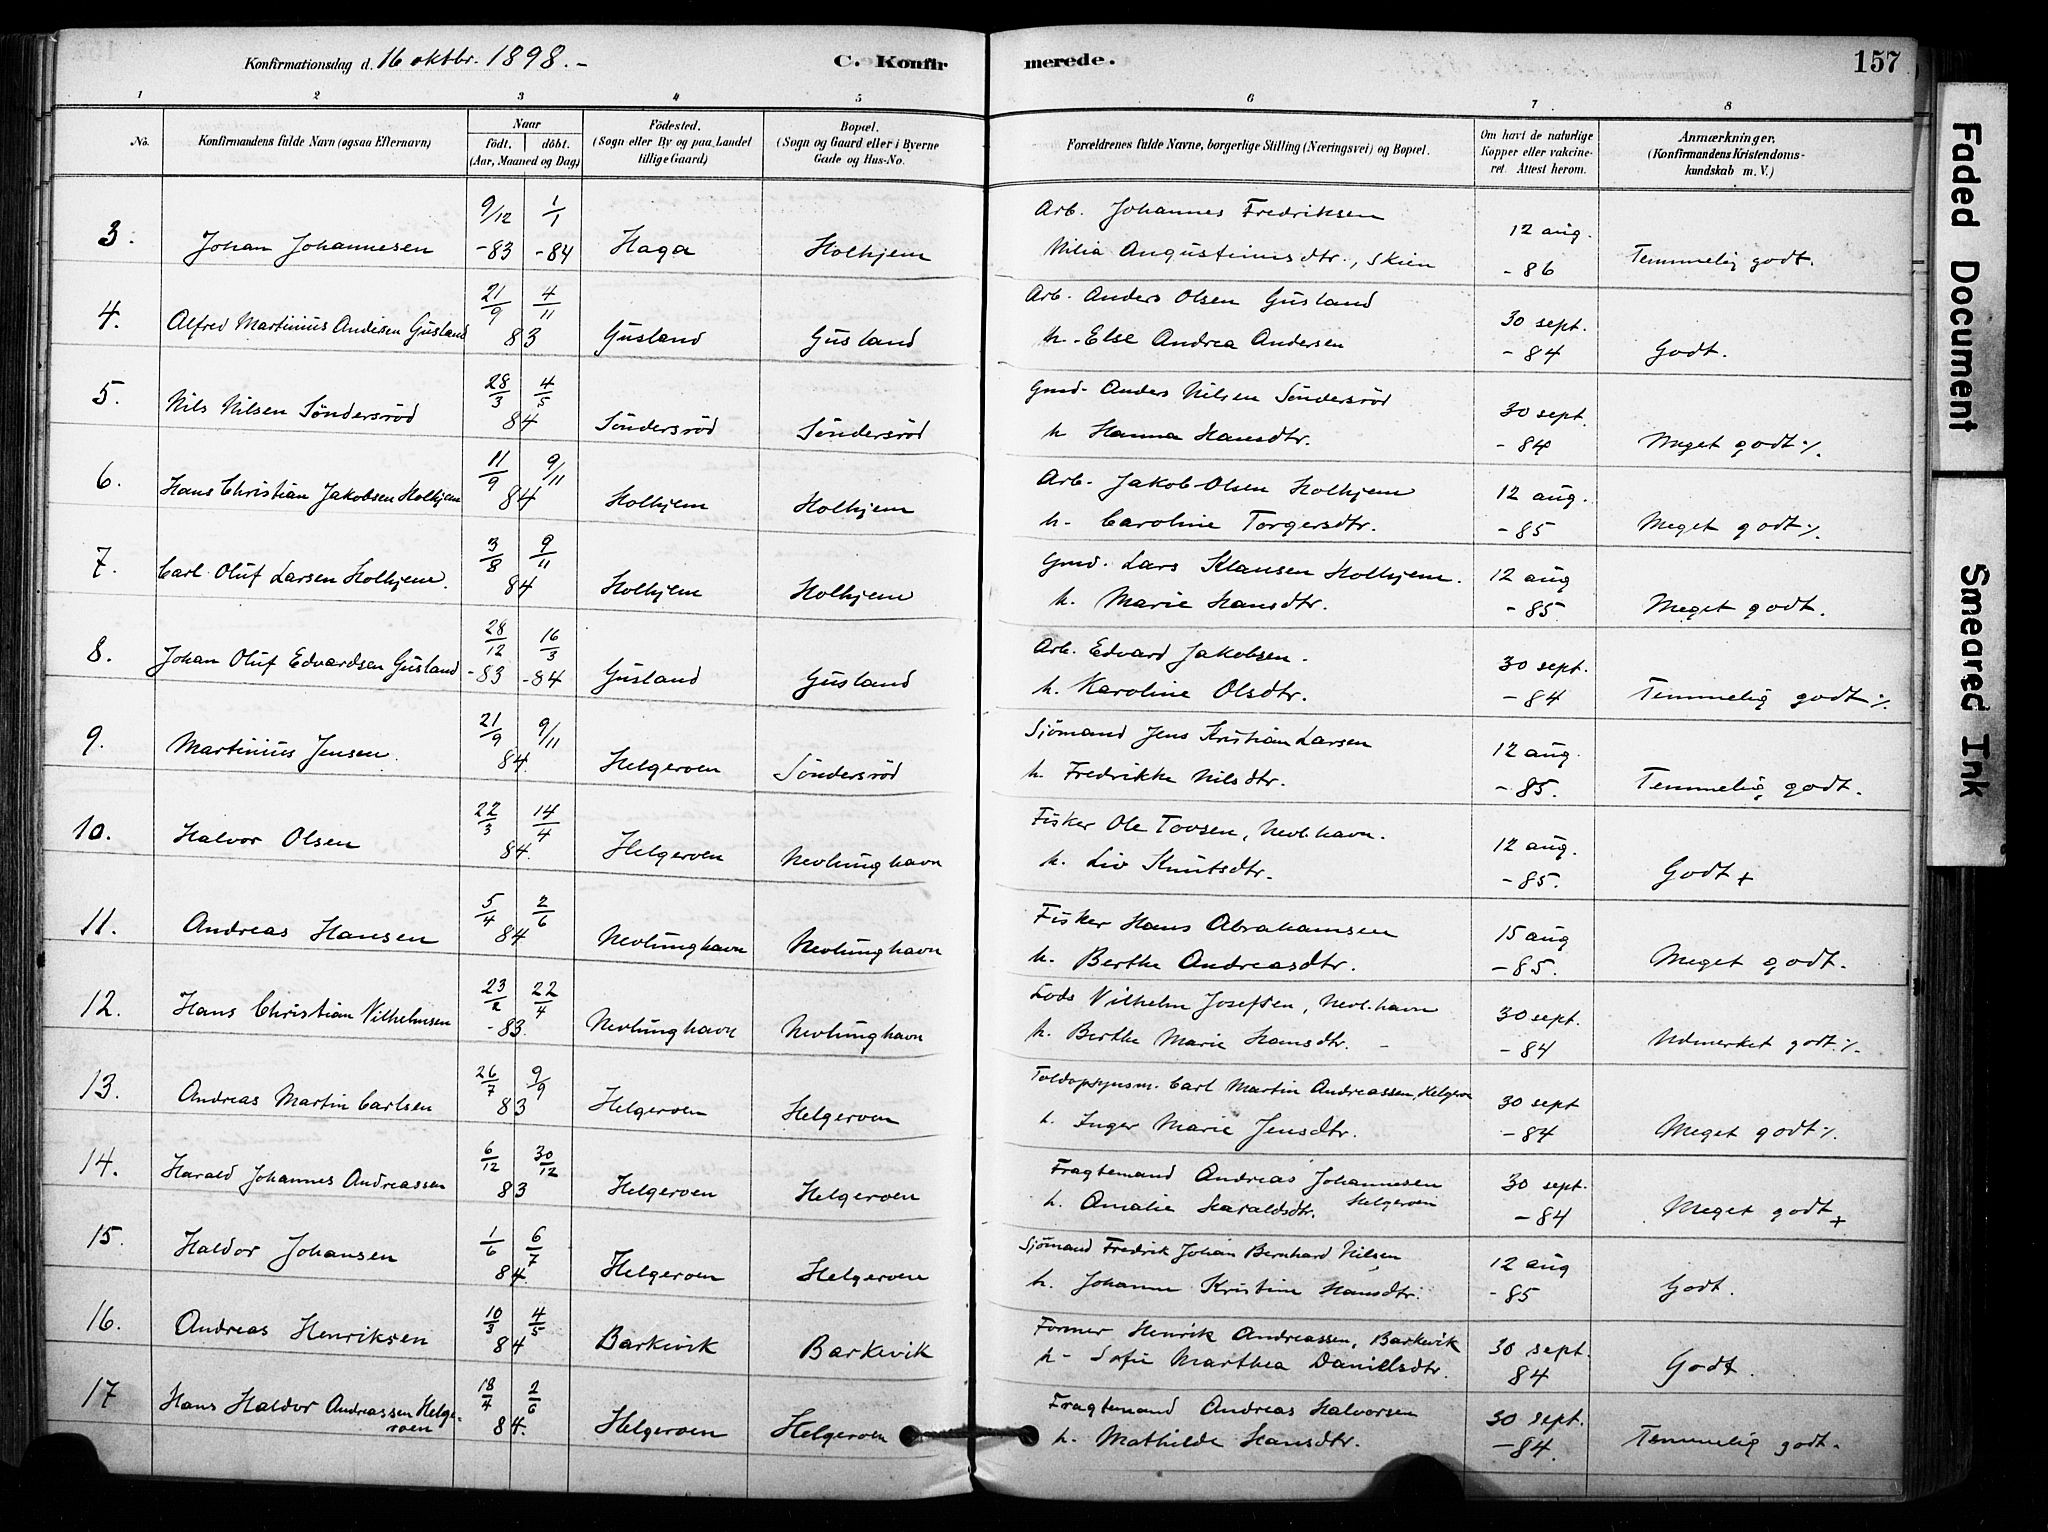 Konfirmationsdag d. 16 oktbr. 1898. –
C. Konfirmerede.
157
1 2 3 4 5 6 7 8
No.
Konfirmandens fulde Navn (ogsaa Efternavn)
Naar födt. döbt. (Aar, Maaned og Dag)
Födested. (Sogn eller By og paa Landet tillige Gaard)
Bopæl. (Sogn og Gaard eller i Byerne Gade og Hus-No.
Forældrenes fulde Navne, borgerlige Stilling (Næringsvei) og Bopæl.
Om havt de naturlige Kopper eller vakcineret. Attest herom.
Anmærkninger. (Konfirmandens Kristendomskundskab m. V.)
3. Johan Johannesen 9/12 -83 1/1 -84 Haga Holhjem Arb. Johannes Fredriksen
Milia Augustinusdtr., Skien 12 aug. -86 Temmelig godt.
4. Alfred Martinius Andersen Gusland 21/9 4/11 83 Gusland Gusland Arb. Anders Olsen Gusland
h. Else Andrea Andersen 30 sept. -84 Godt.
5. Nils Nilsen Söndersröd 28/3 4/5 84 Söndersröd Söndersröd Gmd. Anders Nilsen Söndersröd
h Hanna Hansdtr. 30 sept. -84 Meget godt ./.
6. Hans Christian Jakobsen Holhjem 11/9 9/11 84 Holhjem Holhjem Arb. Jakob Olsen Holhjem
h. Caroline Torgersdtr. 12 aug. -85 Meget godt ./.
7. Carl Oluf Larsen Holhjem. 3/8 9/11 84 Holhjem Holhjem Gmd. Lars Klausen Holhjem.
h. Marie Hansdtr. 12 aug -85. Meget godt.
8. Johan Oluf Edvardsen Gusland 28/12 -83 16/3 -84 Gusland Gusland Arb. Edvard Jakobsen.
h. Karoline Olsdtr. 30 sept. -84 Temmelig godt ./.
9. Martinius Jensen. 21/9 9/11 84. Helgeroen Söndersröd Sjömand Jens Kristian Larsen
h. Fredrikke Nilsdtr. 12 aug. -85. Temmelig godt.
10. Halvor Olsen 22/3 14/4 84. Helgeroen Nevlunghavn Fisker Ole Tovsen, Nevl.havn.
h. Liv Knutsdtr. 12 aug. -85. Godt +
11. Andreas Hansen 5/4 2/6 84 Nevlunghavn Nevlunghavn Fisker Hans Abrahamsen
h. Berthe Andreasdtr. 15 aug -85. Meget godt.
12. Hans Christian Vilhelmsen 23/2 22/4 -83. Nevlunghavn Nevlunghavn Lods Vilhelm Josefsen, Nevl.havn
h. Berthe Marie Hansdtr. - 30 sept. -84 Udmerket godt ./.
13. Andreas Martin Carlsen 26/7 9/9 83 Helgeroen Helgeroen Toldopsynsm. Carl Martin Andreassen, Helgeroe
h. Inger Marie Jensdtr. 30 sept -84 Meget godt ./.
14. Harald Johannes Andreassen 6/12 30/12 83 Helgeroen Helgeroen Fragtemand Andreas Johannesen
h. Amalie Haraldsdtr. Helgeroen 30 sept. -84 Meget godt +
15. Haldor Johansen 1/6 6/7 84. Helgeroen Helgeroen Sjömand Fredrik Johan Bernhard Nilsen
h. Johanne Kristine Hansdtr. 12 aug -85 Godt.
16. Andreas Henriksen 10/3 4/5 84 Barkevik Barkevik Former Henrik Andreassen, Barkevik
h. Sofie Marthea Danielsdtr. 30 sept. 84 Godt.
17 Hans Haldor Andreassen Helgeroen 18/4 2/6 84. Helgeroen Helgeroen Fragtemand Andreas Halvorsen
h. Mathilde Hansdtr. 30 sept. -84. Temmelig godt.
Faded Document
Smeared Ink